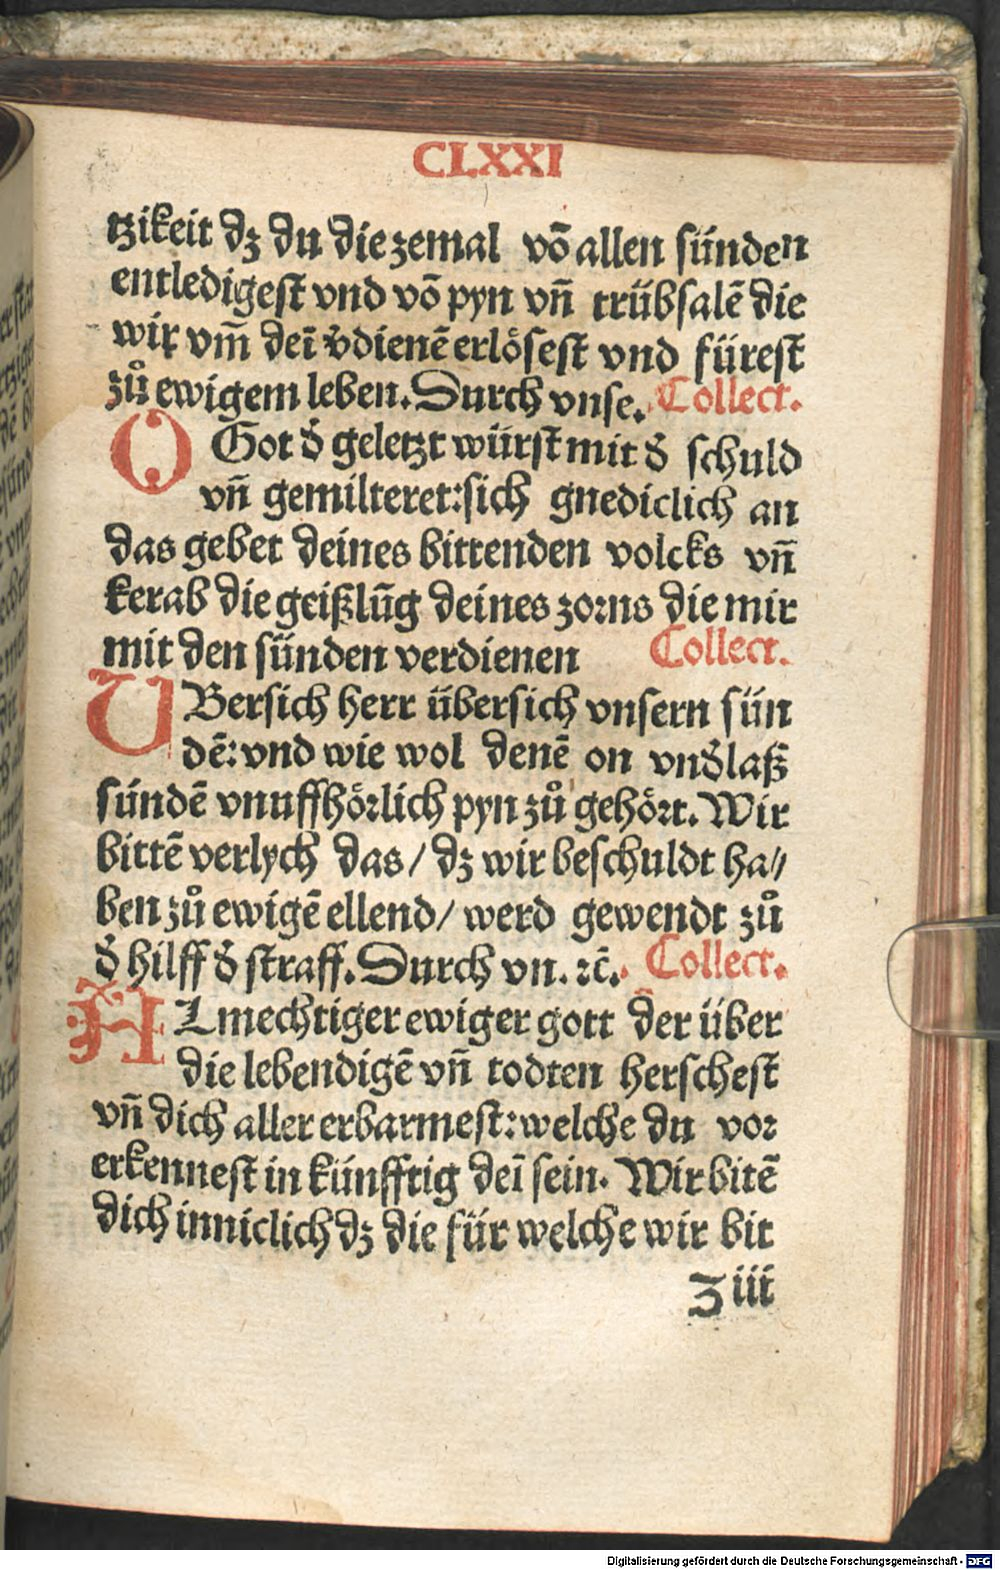 CLXXI
tzikeit dz du die zemal võ allen sünden
entledigest vnd võ pyn vñ trübsalẽ die
wir vm̃ deĩ v̄dienẽ erlösest vnd fürest
zů ewigem leben. Durch vnse. Collect.
O Got d̄ geletzt würst mit d̄ schuld
vñ gemilteret: sich gnediclich an
das gebet deines bittenden volcks vñ
kerab die geißlũg deines zorns die mir
mit den sünden verdienen Collect.
UBersich herr übersich vnsern sün
dẽ: vnd wie wol denẽ on vnd̄laß
sündẽ vnuffhörlich pyn zů gehört. Wir
bittẽ verlych das / dz wir beschuldt ha⸗
ben zů ewigẽ ellend / werd gewendt zů
d̄ hilff d̄ straff. Durch vn. ꝛc̄. Collect.
ALmechtiger ewiger gott der über
die lebendigẽ vñ todten herschest
vñ dich aller erbarmest: welche du vor
erkennest in künfftig deĩ sein. Wir bitẽ
dich inniclich dz die für welche wir bit
z iii
Digitalisierung gefördert durch die Deutsche Forschungsgemeinschaft - DFG